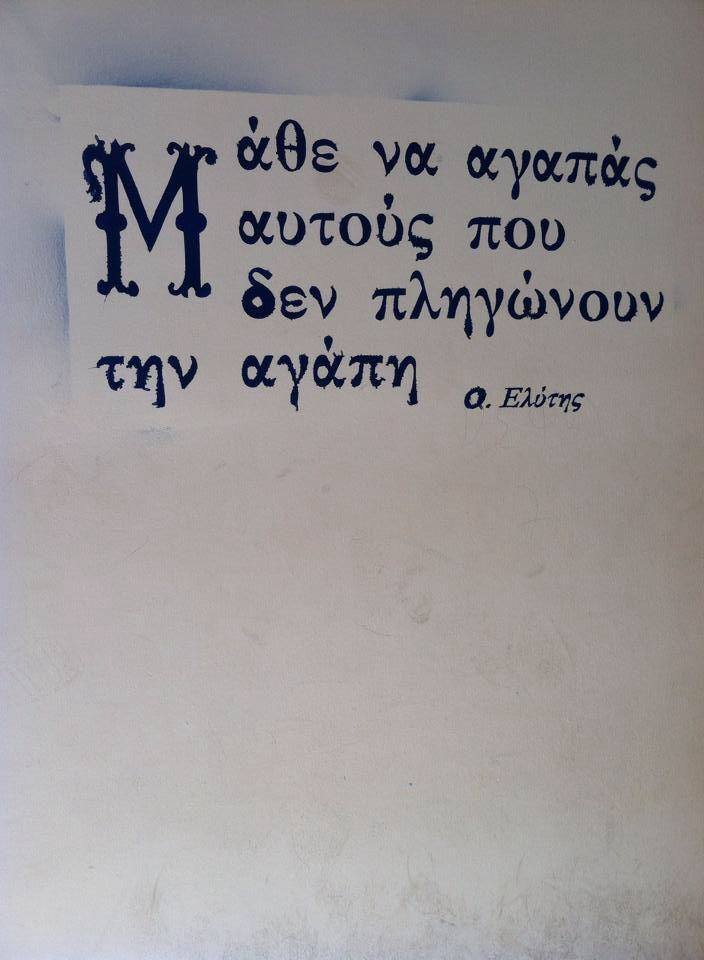 Μάθε να αγαπάς
αυτούς που
δεν πληγώνουν
την αγάπη
Ο. Ελύτης